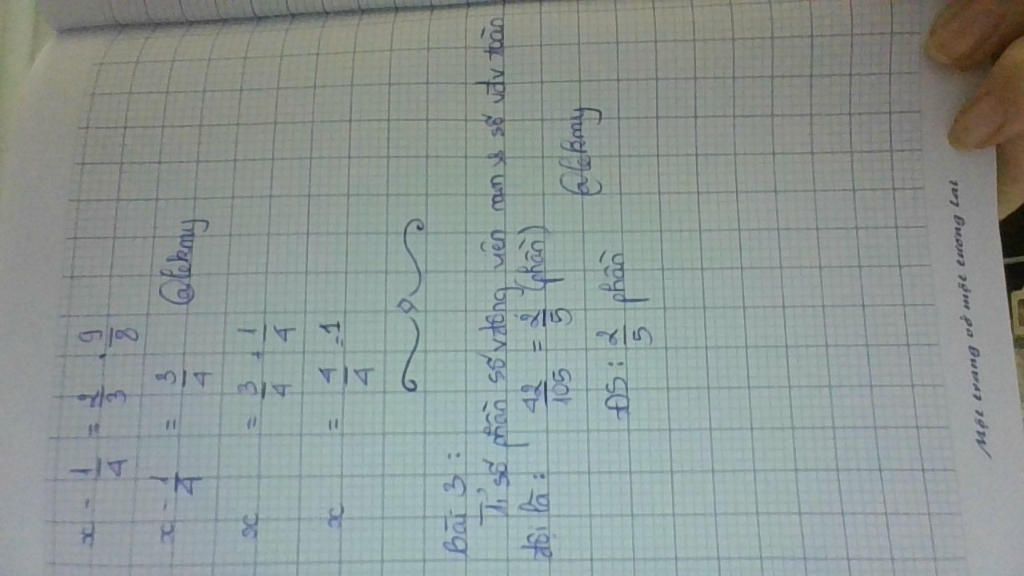 x - 1/4 = 2/3 . 9/8
x - 1/4 = 3/4
@lekmy
x = 3/4 + 1/4
x = 4/4 = 1
Bài 3:
Tỉ số phần số vđộng viên nam số với toàn
đội là: 42/105 = 2/5 (phần)
@lekmy
ĐS: 2/5 phần
Một trang vở một tương lai